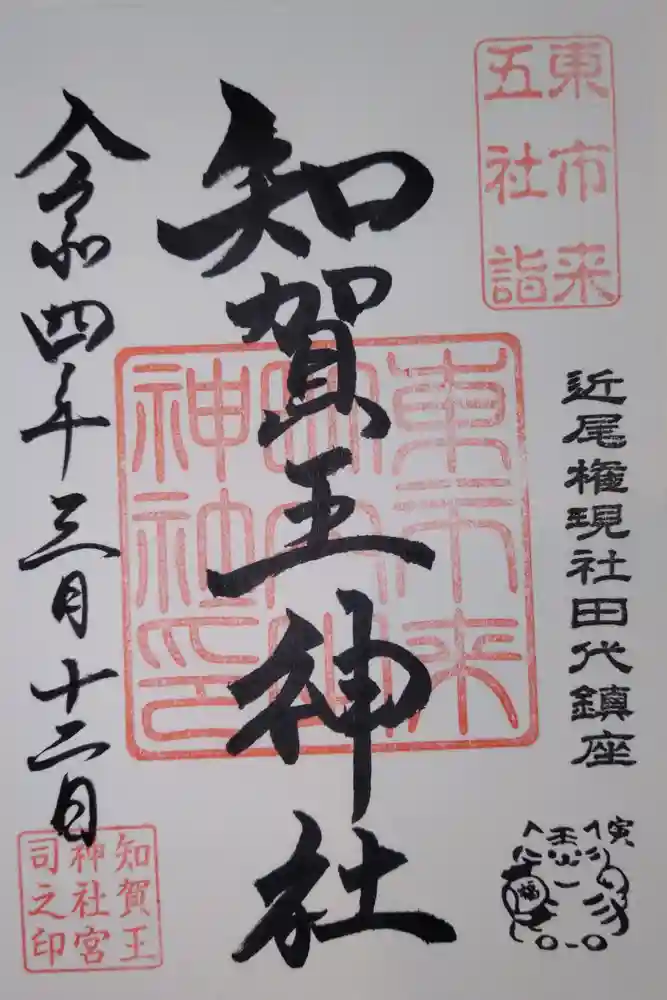 東市来
五社詣
近尾権現社田代鎮座
寅
王
福
知賀王神社
東市来
神社印
令和四年三月十二日
知賀王
神社宮
司之印